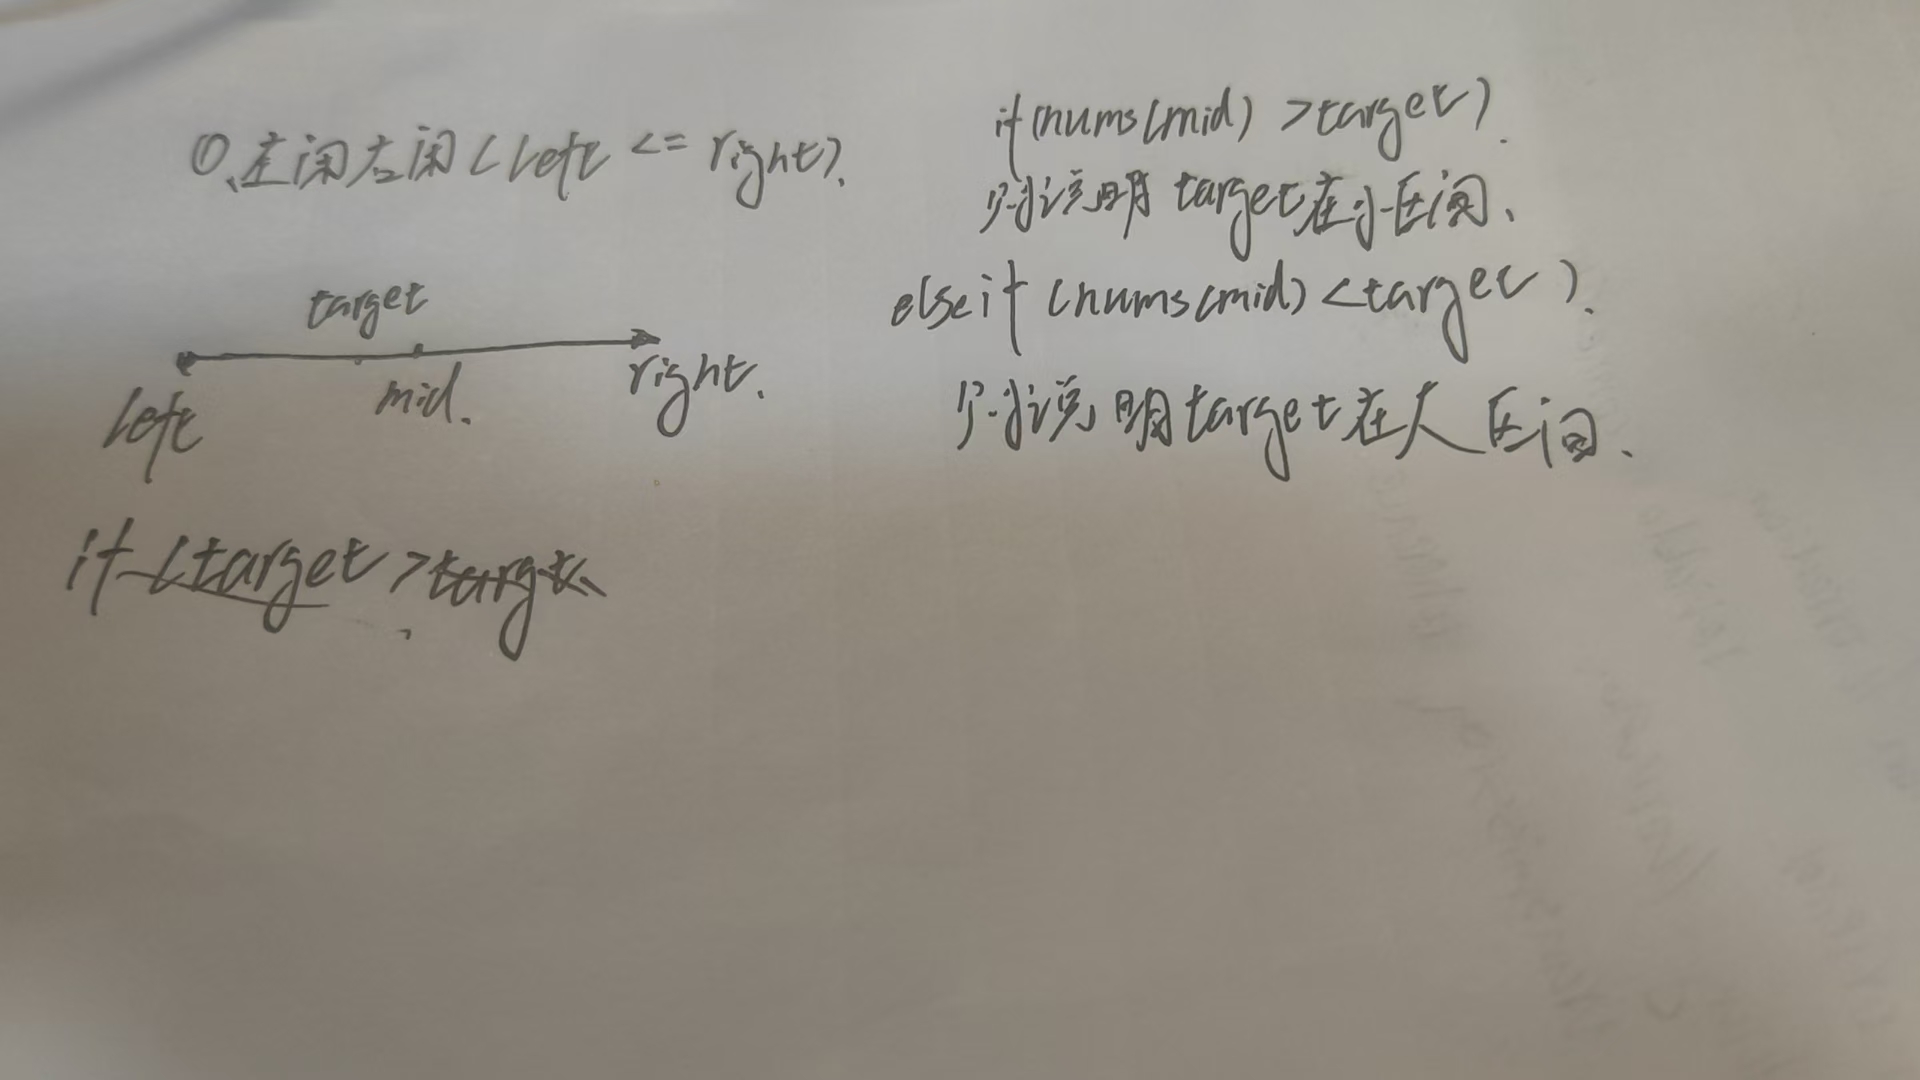 ①、左闭右闭(left <= right)、
target
left
mid.
right.
if (target > target、
if(nums(mid) >target).
则说明 target在小区间、
else if (nums(mid) <target).
则说明 target在大区间、